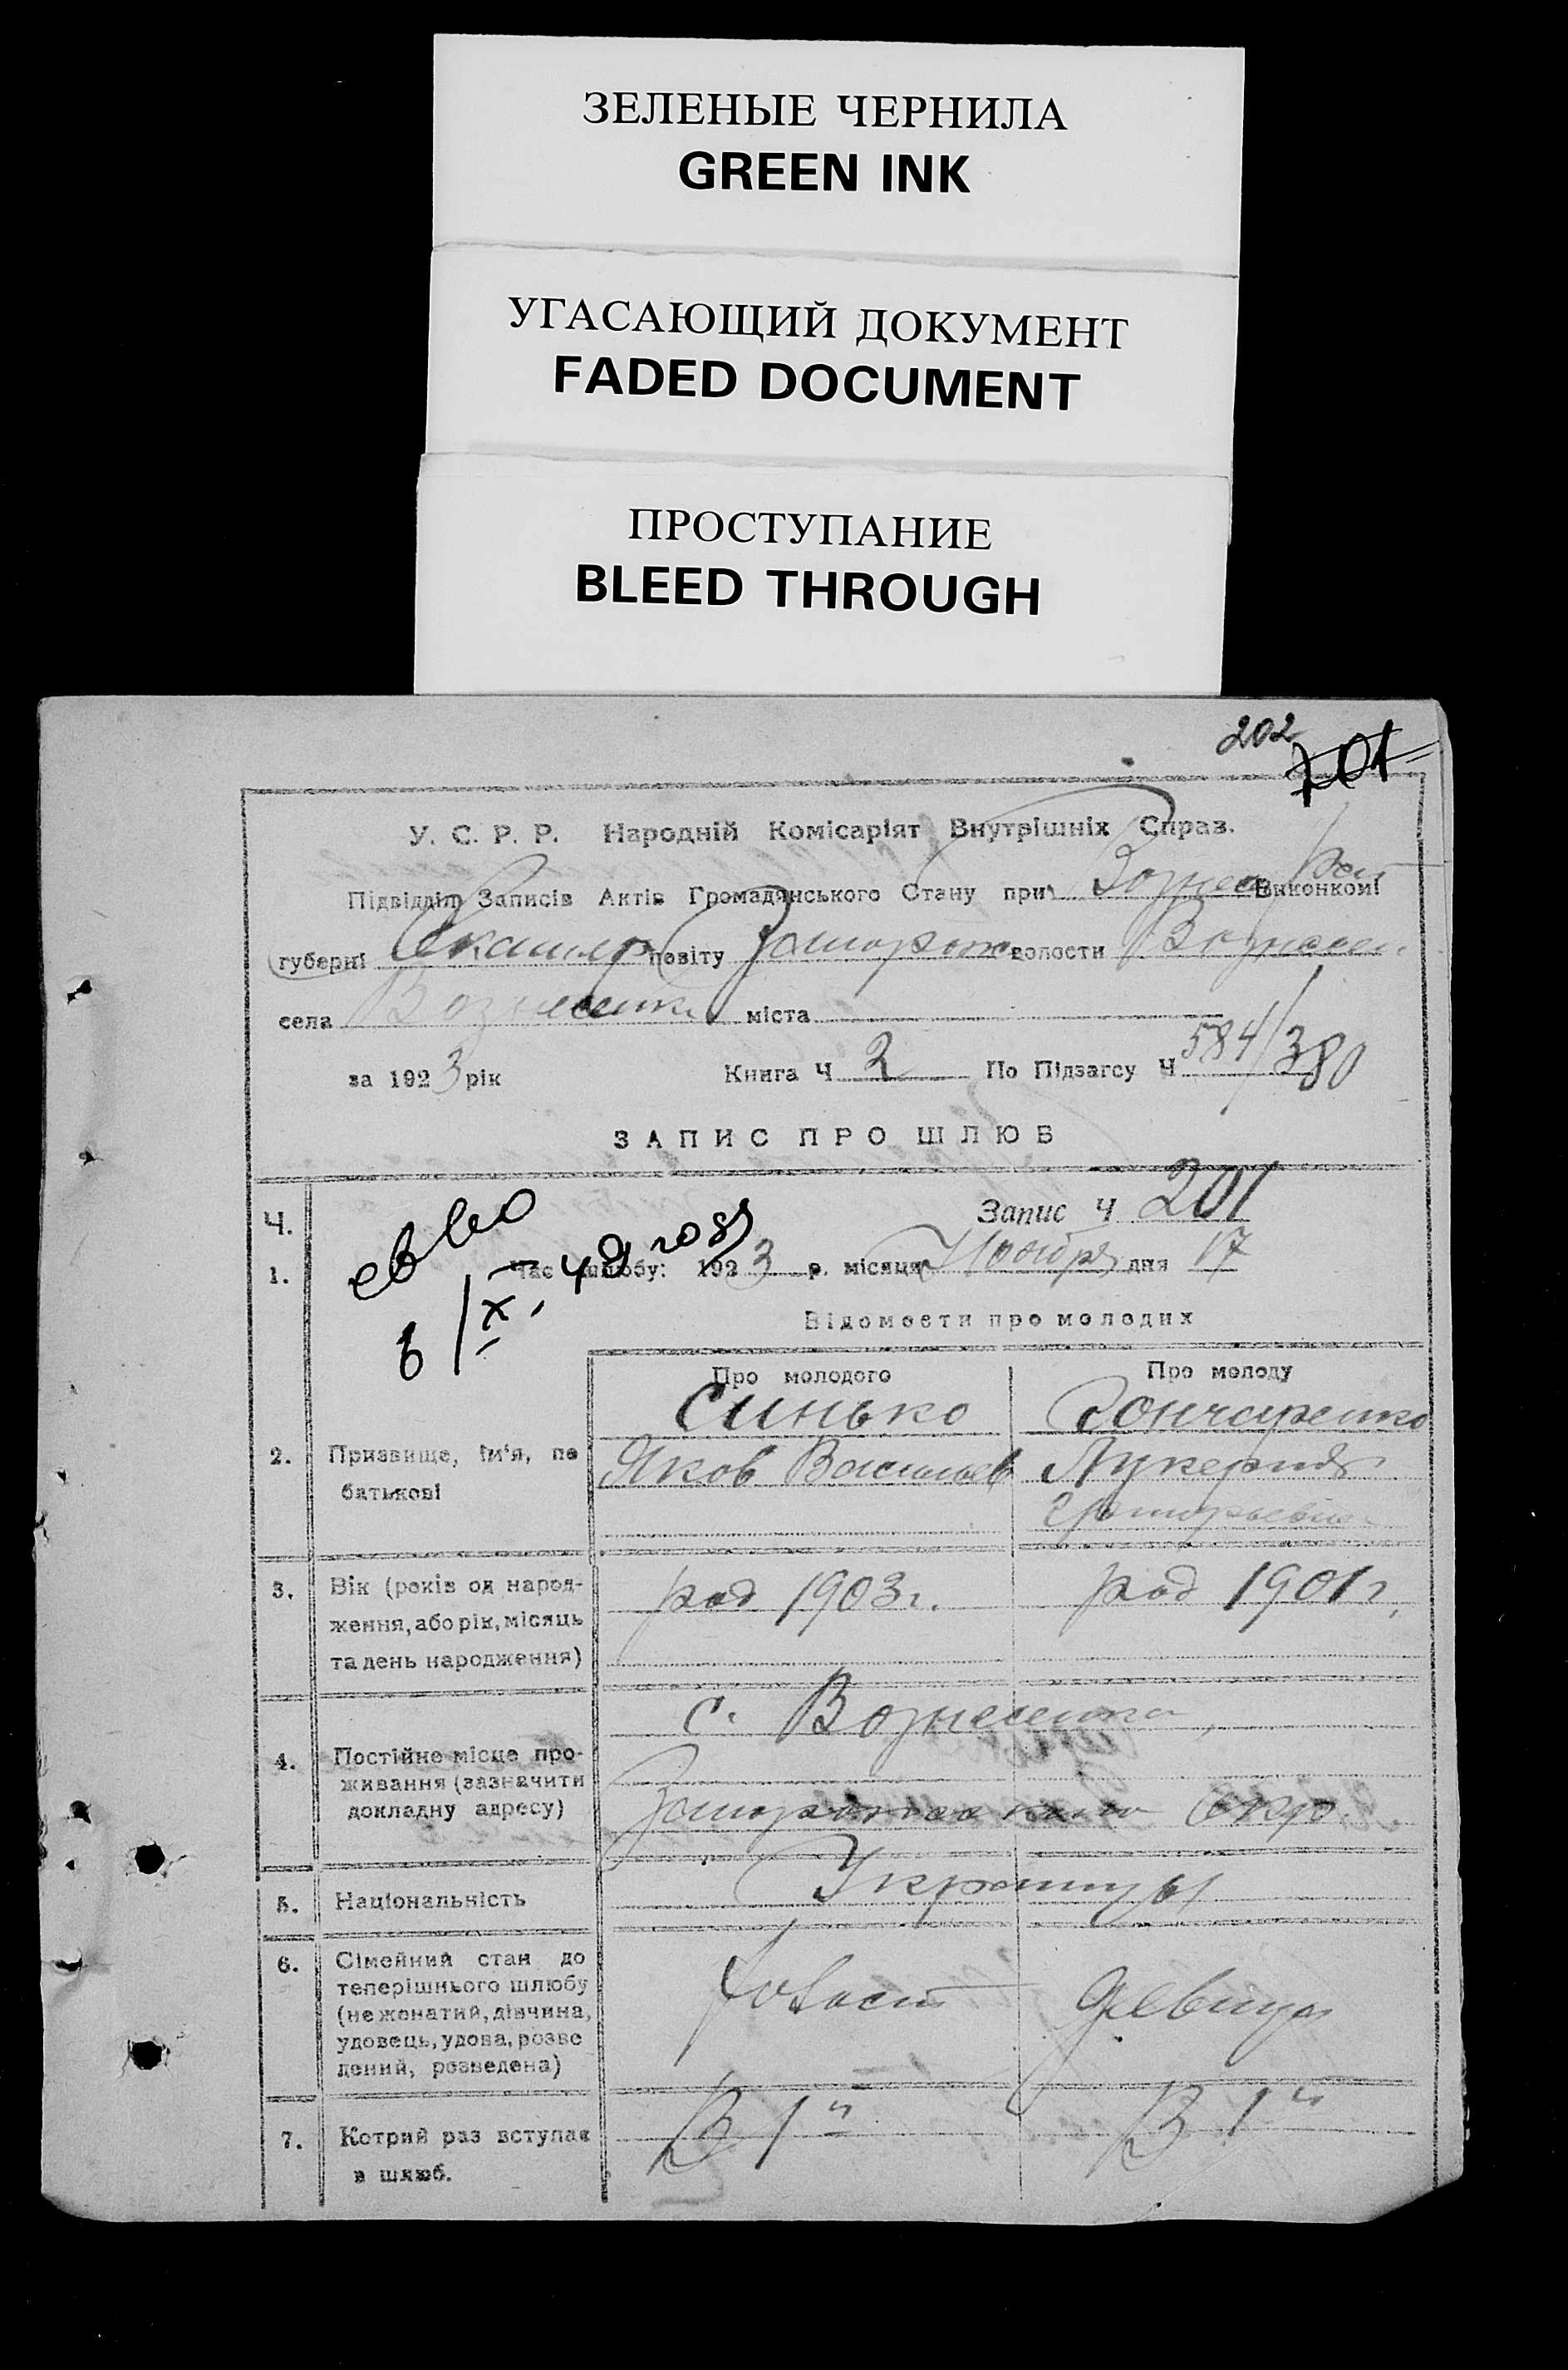 ЗЕЛЕНЫЕ ЧЕРНИЛА
GREEN INK
УГАСАЮЩИЙ ДОКУМЕНТ
FADED DOCUMENT
ПРОСТУПАНИЕ
BLEED THROUGH
202
У. С. Р. Р. Народній Комісаріят Внутрішніх Справ.
Підвідділ Записів Актів Громадянського Стану при Виконкомі
губерні повіту волости Вознесен
села Вознесенка міста
за 1923 рік Книга Ч 2 По Підзагсу Ч 584/380
ЗАПИС ПРО ШЛЮБ
Ч. Запис Ч 201
1. Час шлюбу: 1923 р. місяця Ноября дня 17
Відомости про молодих
Про молодого Про молоду
Синько Гончаренко
2. Призвище, ім'я, по Яков Васильев Лукерия
батькові Григорьевна
3. Вік (років од народ- род 1903 г. род 1901 г.
ження, або рік, місяць
та день народження)
с. Вознесенка,
4. Постійне місце про-
живання (зазначити
докладну адресу) Запорожского Окр.
5. Національність Украинцы
6. Сімейний стан до
теперішнього шлюбу
(не жонатий, дівчина, холост девица
удовець, удова, розве
дений, розведена)
7. Котрий раз вступає В 1й В 1й
в шлюб.